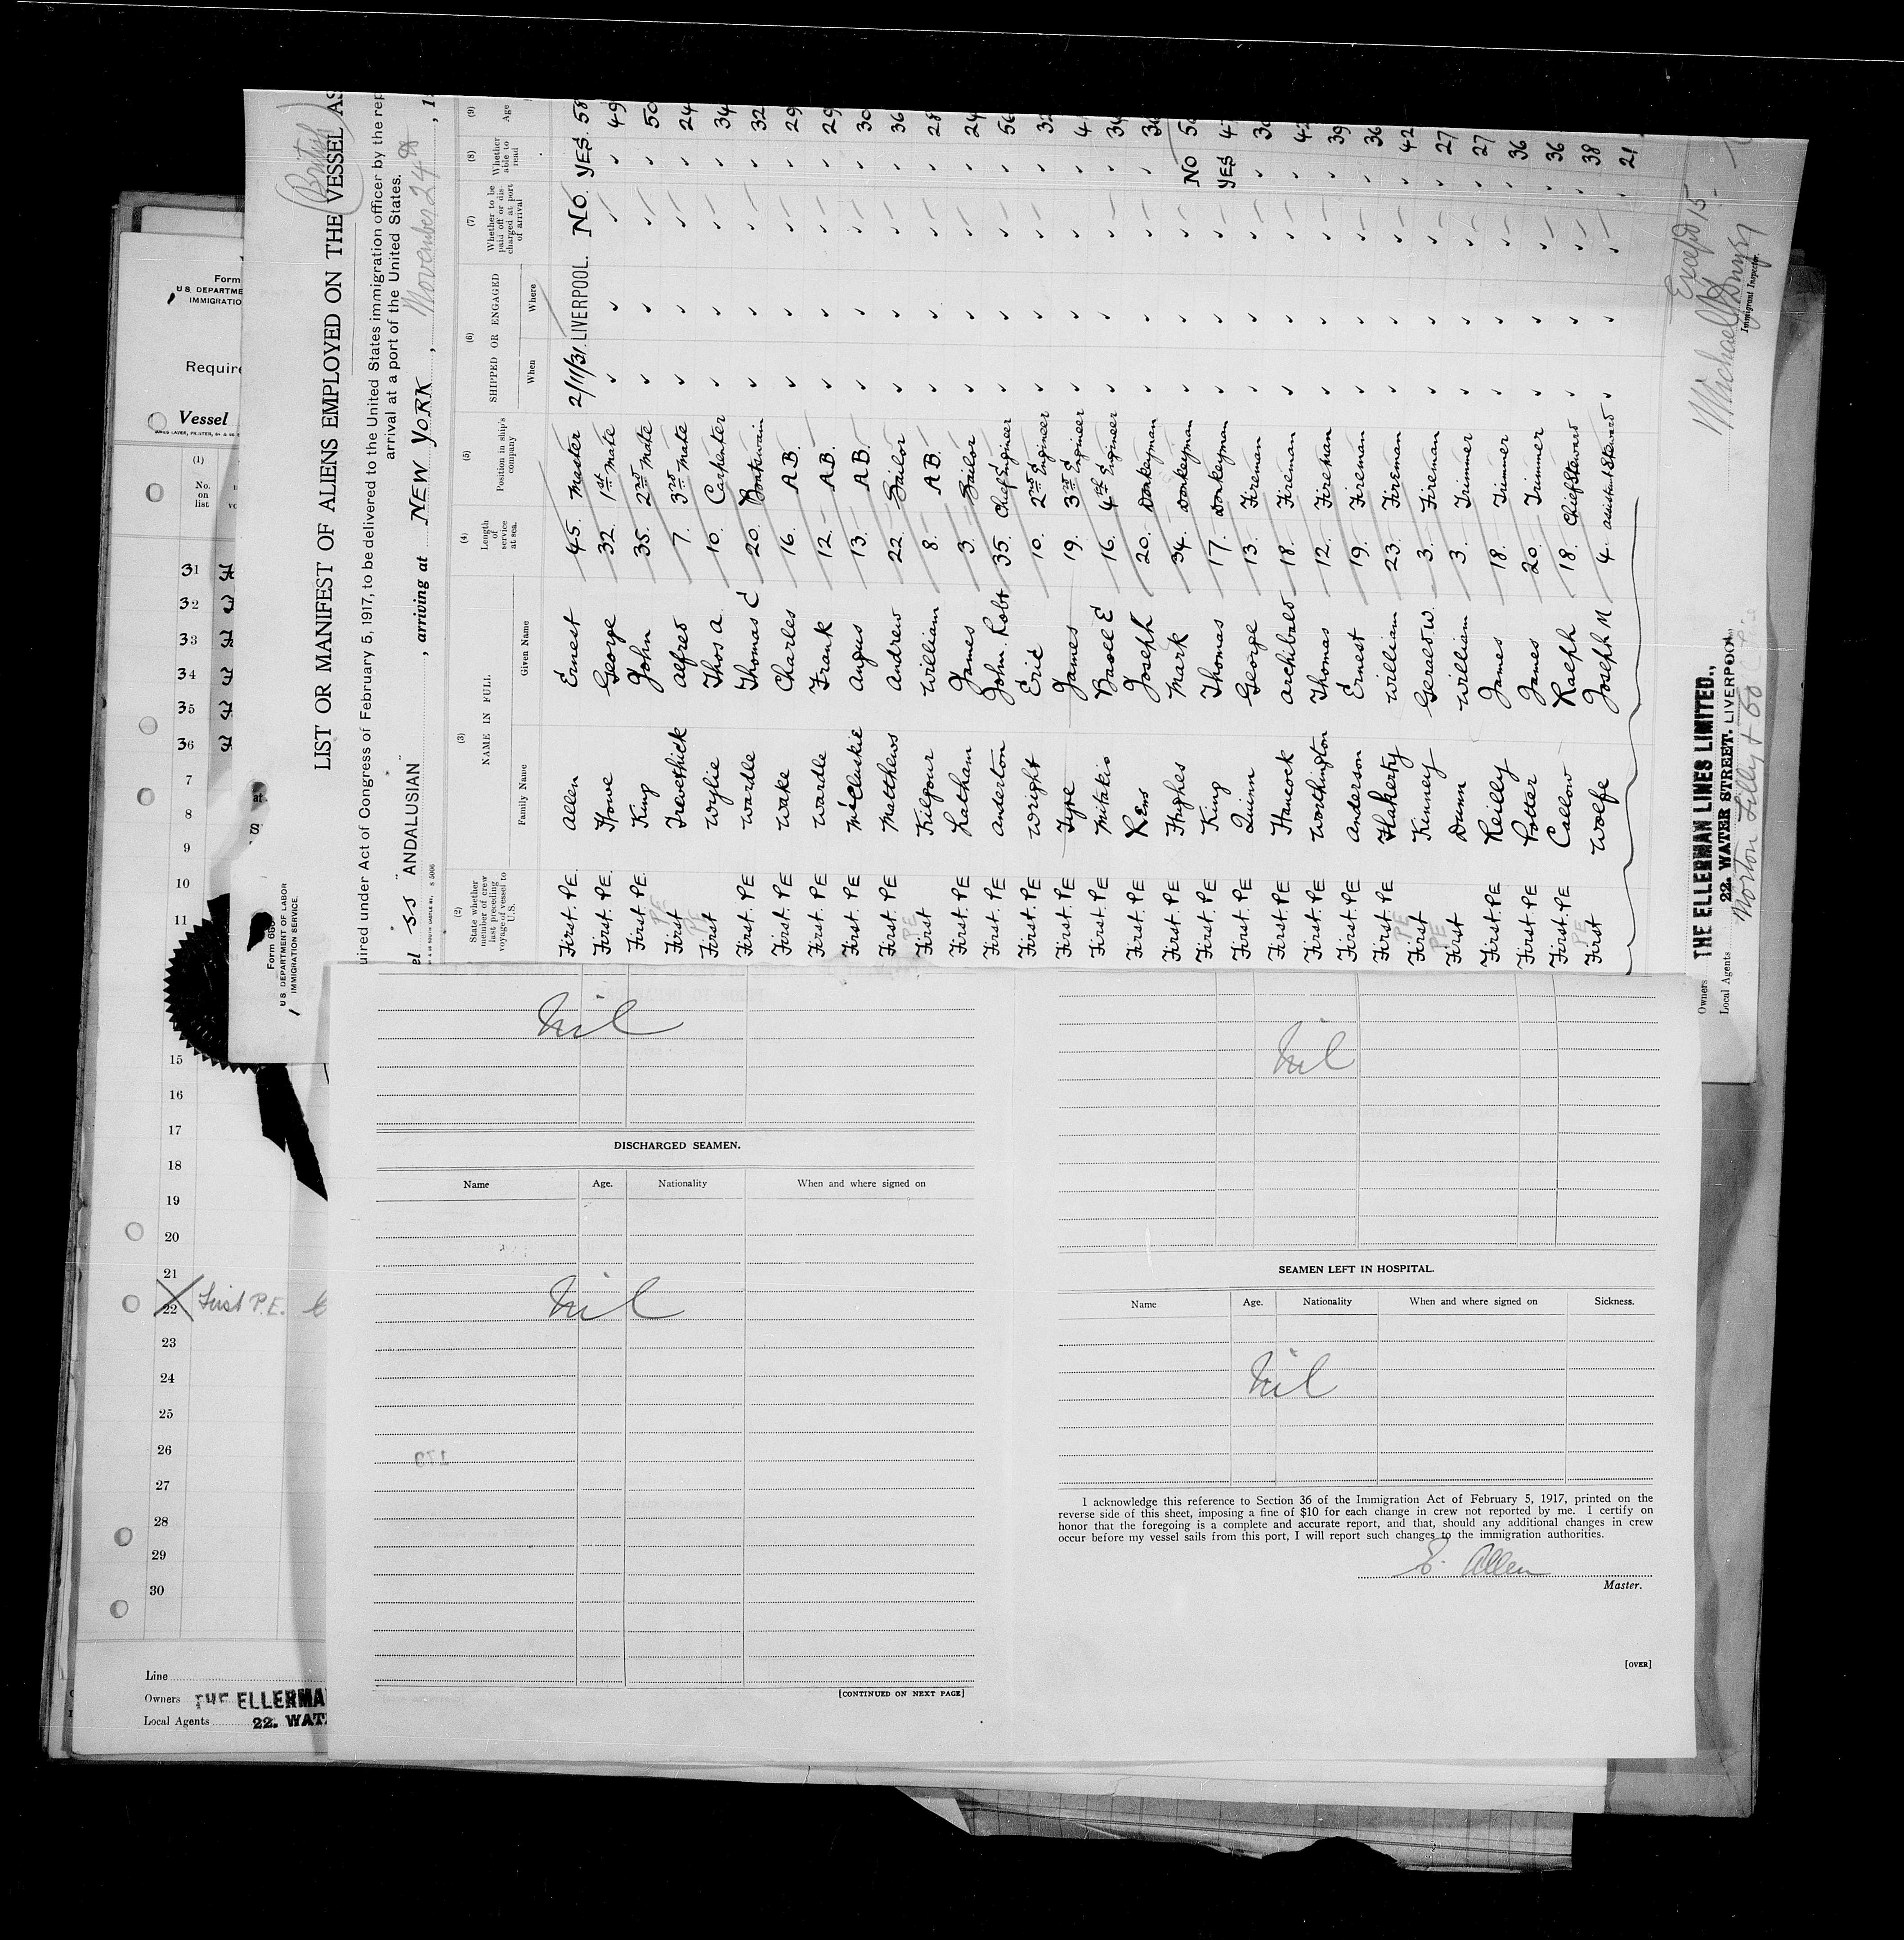 Form
U S. DEPARTME
IMMIGRATIO
Require
Vessel
(1)
No.
on
list
31
32
33
34
35
36
7
8
9
10
11
15
16
17
18
19
20
21
22 First P.E.
23
24
25
26
27
28
29
30
Line
Owners THE ELLERMA
Local Agents 22. WAT
Form 680
U S DEPARTMENT OF LABOR
IMMIGRATION SERVICE.
(British)
LIST OR MANIFEST OF ALIENS EMPLOYED ON THE VESSEL AS
uired under Act of Congress of February 5, 1917, to be delivered to the United States immigration officer by the rep
arrival at a port of the United States.
el SS "ANDALUSIAN", arriving at NEW YORK, November 24th, 1
(2) (3) (4) (5) (6) (7) (8) (9)
State whether member of crew last preceding voyage of vessel to U.S. NAME IN FULL Family Name Given Name Length of service at sea. Position in ship's company SHIPPED OR ENGAGED When Where Whether to be paid off or discharged at port of arrival Whether able to read Age
First. PE. Allen Ernest 45. Master 2/11/31. LIVERPOOL. No. YES. 58
First. PE. Howe George 32. 1st Mate ✓ ✓ ✓ ✓ 49
First. PE. King John 35. 2nd Mate ✓ ✓ ✓ ✓ 50
First PE Trevethick Alfred 7. 3rd Mate ✓ ✓ ✓ ✓ 24
First PE Wylie Thos A 10. Carpenter ✓ ✓ ✓ ✓ 34
First. PE Wardle Thomas C 20. Boatswain ✓ ✓ ✓ ✓ 32
First. PE Wake Charles 16. A.B. ✓ ✓ ✓ ✓ 29
First. PE Wardle Frank 12. A.B. ✓ ✓ ✓ ✓ 29
First. PE McCluskie Angus 13. A.B. ✓ ✓ ✓ ✓ 30
First. PE Matthews Andrew 22. Sailor ✓ ✓ ✓ ✓ 36
First PE Kilgour William 8. A.B. ✓ ✓ ✓ ✓ 28
First. PE Latham James 3. Sailor ✓ ✓ ✓ ✓ 24
First. PE Anderton John. Robt 35. Chief Engineer ✓ ✓ ✓ ✓ 56
First. PE Wright Eric 10. 2nd Engineer ✓ ✓ ✓ ✓
First. PE James 19. 3rd Engineer ✓ ✓ ✓ ✓
First. PE Mitakis E 16. 4th Engineer ✓ ✓ ✓ ✓
First. PE Joseph 20. Donkeyman ✓ ✓ ✓ ✓
First. PE Hughes Mark 34. Donkeyman ✓ ✓ ✓ NO
First. PE King Thomas 17. Donkeyman ✓ ✓ ✓ YES
First. PE Quinn George 13. Fireman ✓ ✓ ✓ ✓
First. PE Hancock Archibald 18. Fireman ✓ ✓ ✓ ✓
First. PE Worthington Thomas 12. Fireman ✓ ✓ ✓ ✓ 39
First. PE Anderson Ernest 19. Fireman ✓ ✓ ✓ ✓ 36
First. PE Flaherty William 23. Fireman ✓ ✓ ✓ ✓ 42
First PE Kinney Gerald W. 3. Fireman ✓ ✓ ✓ ✓ 27
First PE Dunn William 3. Trimmer ✓ ✓ ✓ ✓ 27
First. PE Reilly James 18. Trimmer ✓ ✓ ✓ ✓ 36
First. PE Potter James 20. Trimmer ✓ ✓ ✓ ✓ 36
First. PE Callow Ralph 18. Chief Steward ✓ ✓ ✓ ✓ 38
First PE Wolfe Joseph M 4. Assistant Steward ✓ ✓ ✓ ✓ 21
Owners THE ELLERMAN LINES LIMITED.,
22. WATER STREET. LIVERPOOL.
Local Agents Norton Lilly & Co
Except 15
Michael
Immigrant Inspector.
Nil
DISCHARGED SEAMEN.
Name Age. Nationality When and where signed on
Nil
179
[CONTINUED ON NEXT PAGE]
Nil
SEAMEN LEFT IN HOSPITAL.
Name Age. Nationality When and where signed on Sickness.
Nil
I acknowledge this reference to Section 36 of the Immigration Act of February 5, 1917, printed on the
reverse side of this sheet, imposing a fine of $10 for each change in crew not reported by me. I certify on
honor that the foregoing is a complete and accurate report, and that, should any additional changes in crew
occur before my vessel sails from this port, I will report such changes to the immigration authorities.
E. Allen
Master.
[OVER]